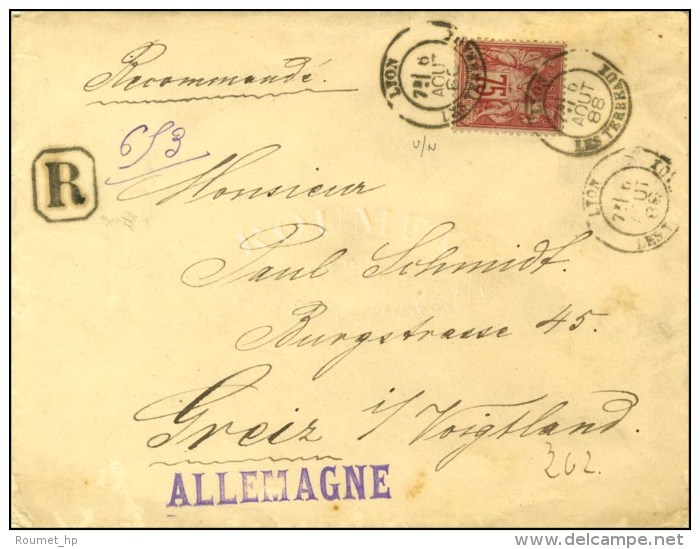 Recommandé.
653
R
LYON
6
AOUT
88
LES TERREAUX
75
LYON
6
AOUT
88
LES TERREAUX
LYON
6
LES T
Monsieur
Paul Schmidt.
Burgstrasse 45.
Greiz i/Voigtland.
202.
ALLEMAGNE
ROUMET
Roumet_hp
www.delcampe.net